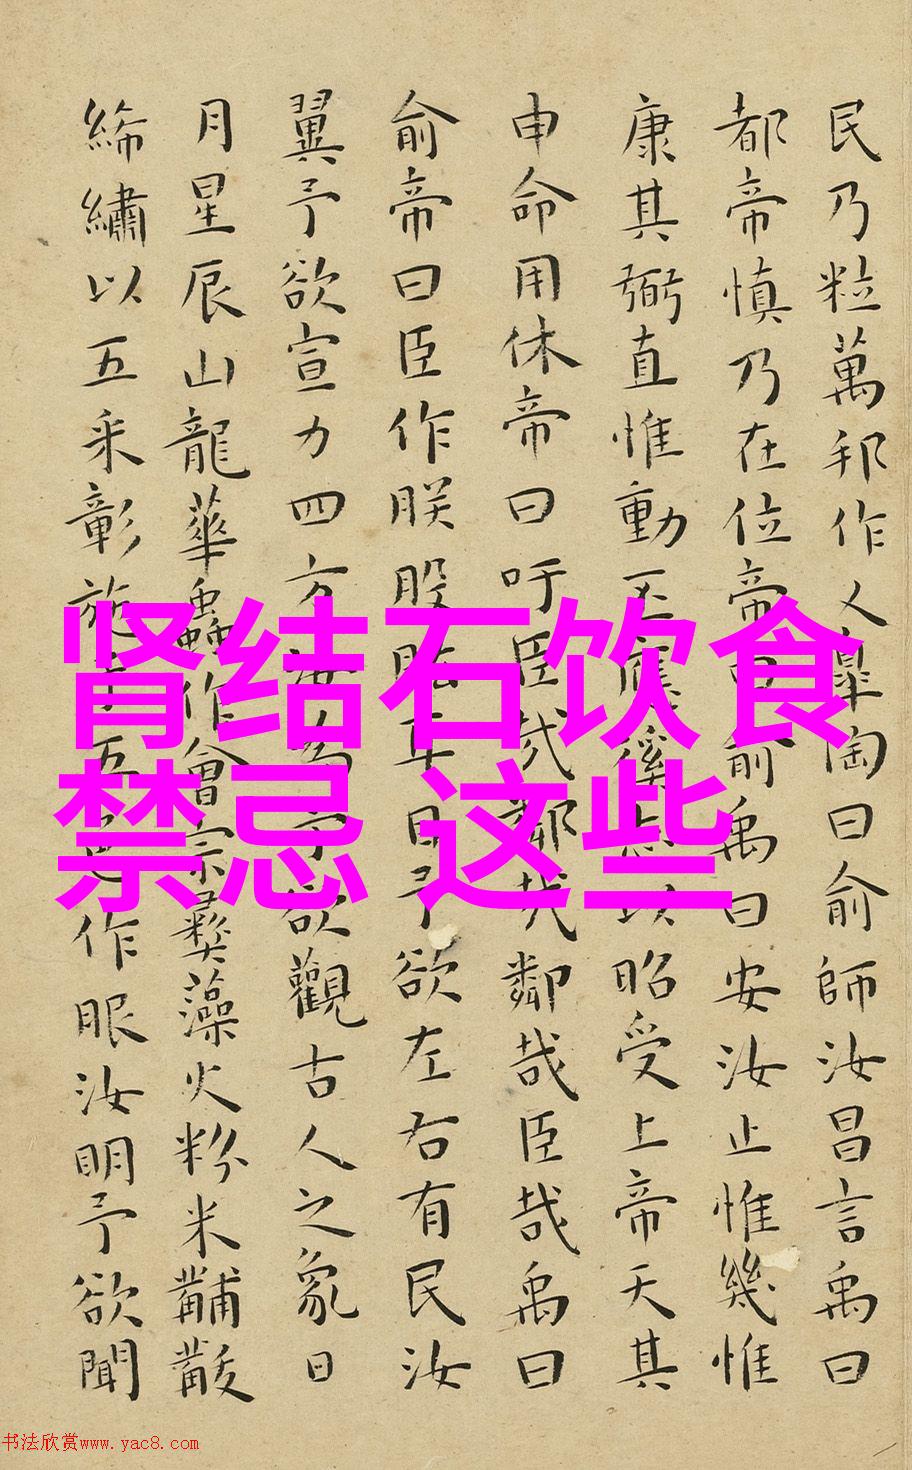 民乃粒萬邦作乂臯陶曰俞師汝昌言禹曰
都帝慎乃在位帝曰俞禹曰安汝止惟幾惟
康其弼直惟動丕應徯志以昭受上帝天其
申命用休帝曰吁臣哉鄰哉鄰哉臣哉禹曰
俞帝曰臣作朕股肱耳目予欲左右有民汝
翼予欲宣力四方汝為予欲觀古人之象日
月星辰山龍華蟲作會宗彝藻火粉米黼黻
絺繡以五采彰施于五色作服汝明予欲聞
肾结石饮食
禁忌 这些
书法欣赏www.yac8.com